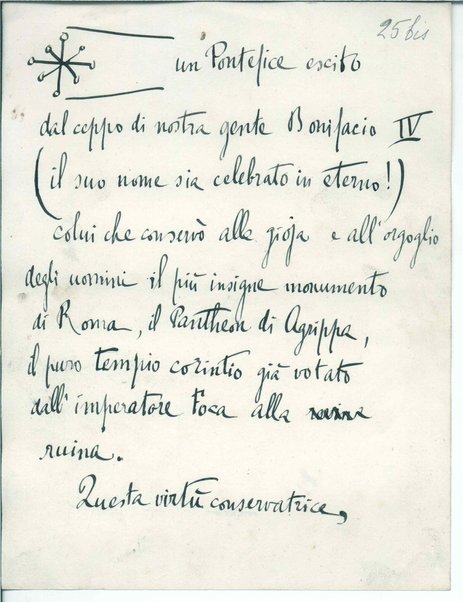 25 bis
un Pontefice escito
dal ceppo di nostra gente Bonifacio IV
(il suo nome sia celebrato in eterno!)
colui che conservò alla gioja e all'orgoglio
degli uomini il più insigne monumento
di Roma, il Pantheon di Agrippa,
il puro tempio corintio già votato
dall'imperatore Foca alla ruina
ruina.
Questa virtù conservatrice,